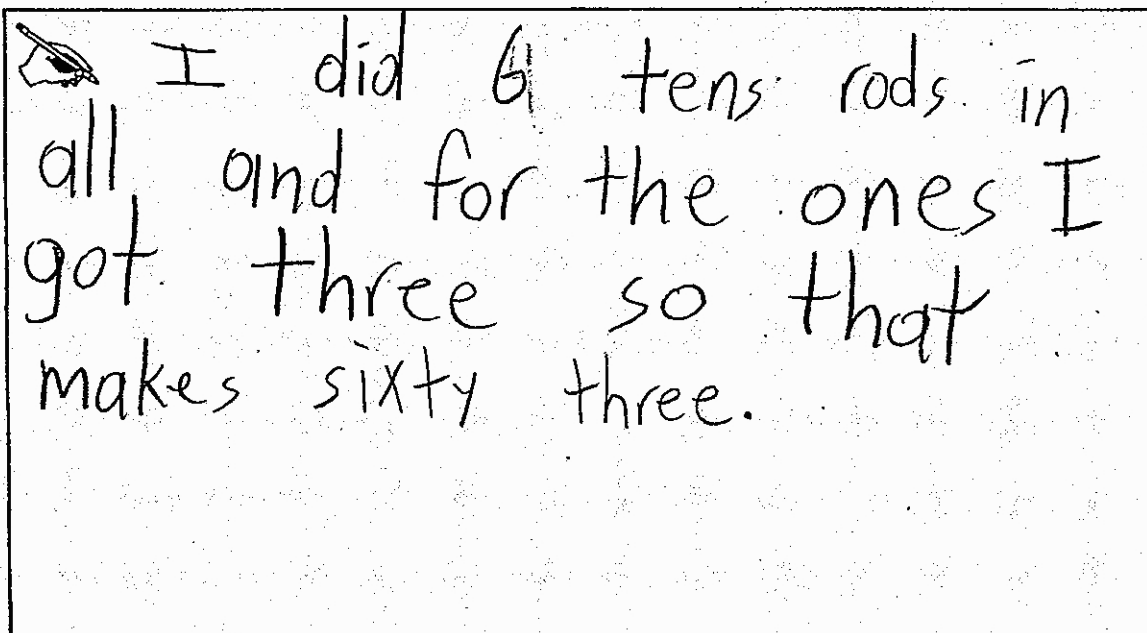 I did 6 tens rods in
all and for the ones I
got three so that
makes sixty three.